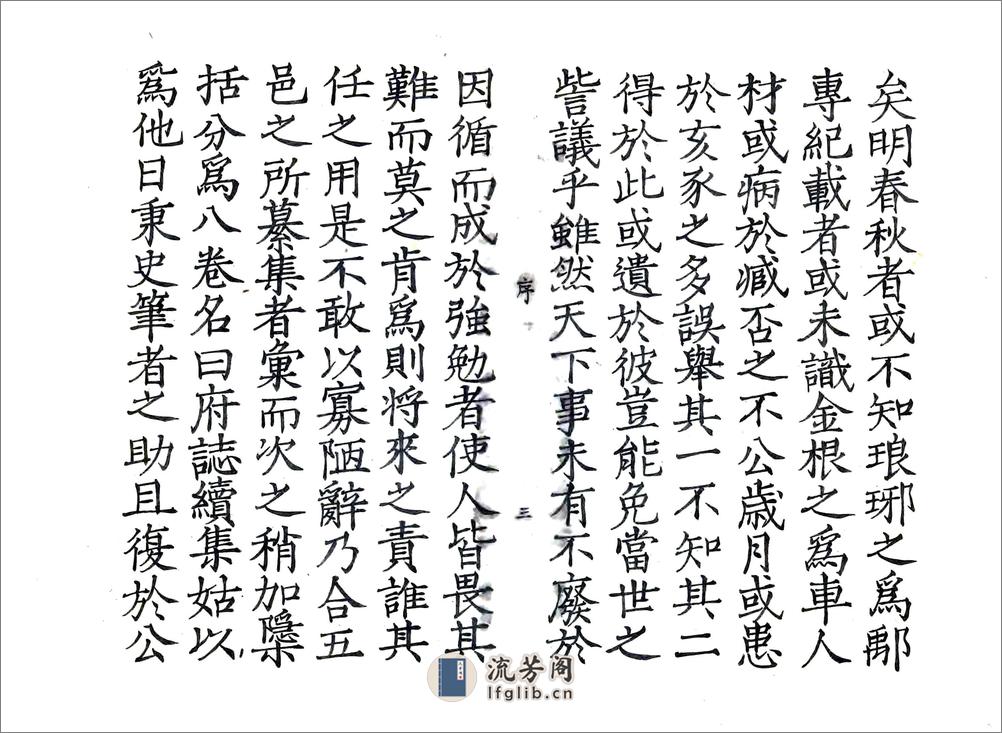 矣明春秋者或不知琅琊之爲鄅
專紀載者或未識金根之爲車人
材或病於臧否之不公歲月或患
於亥豕之多誤舉其一不知其二
得於此或遺於彼豈能免當世之
訾議乎雖然天下事未有不廢於
序
三
因循而成於強勉者使人皆畏其
難而莫之肯爲則将來之責誰其
任之用是不敢以寡陋辭乃合五
邑之所纂集者彙而次之稍加隱
括分爲八卷名曰府誌續集姑以
爲他日秉史筆者之助且復於公
流芳阁
lfglib.cn